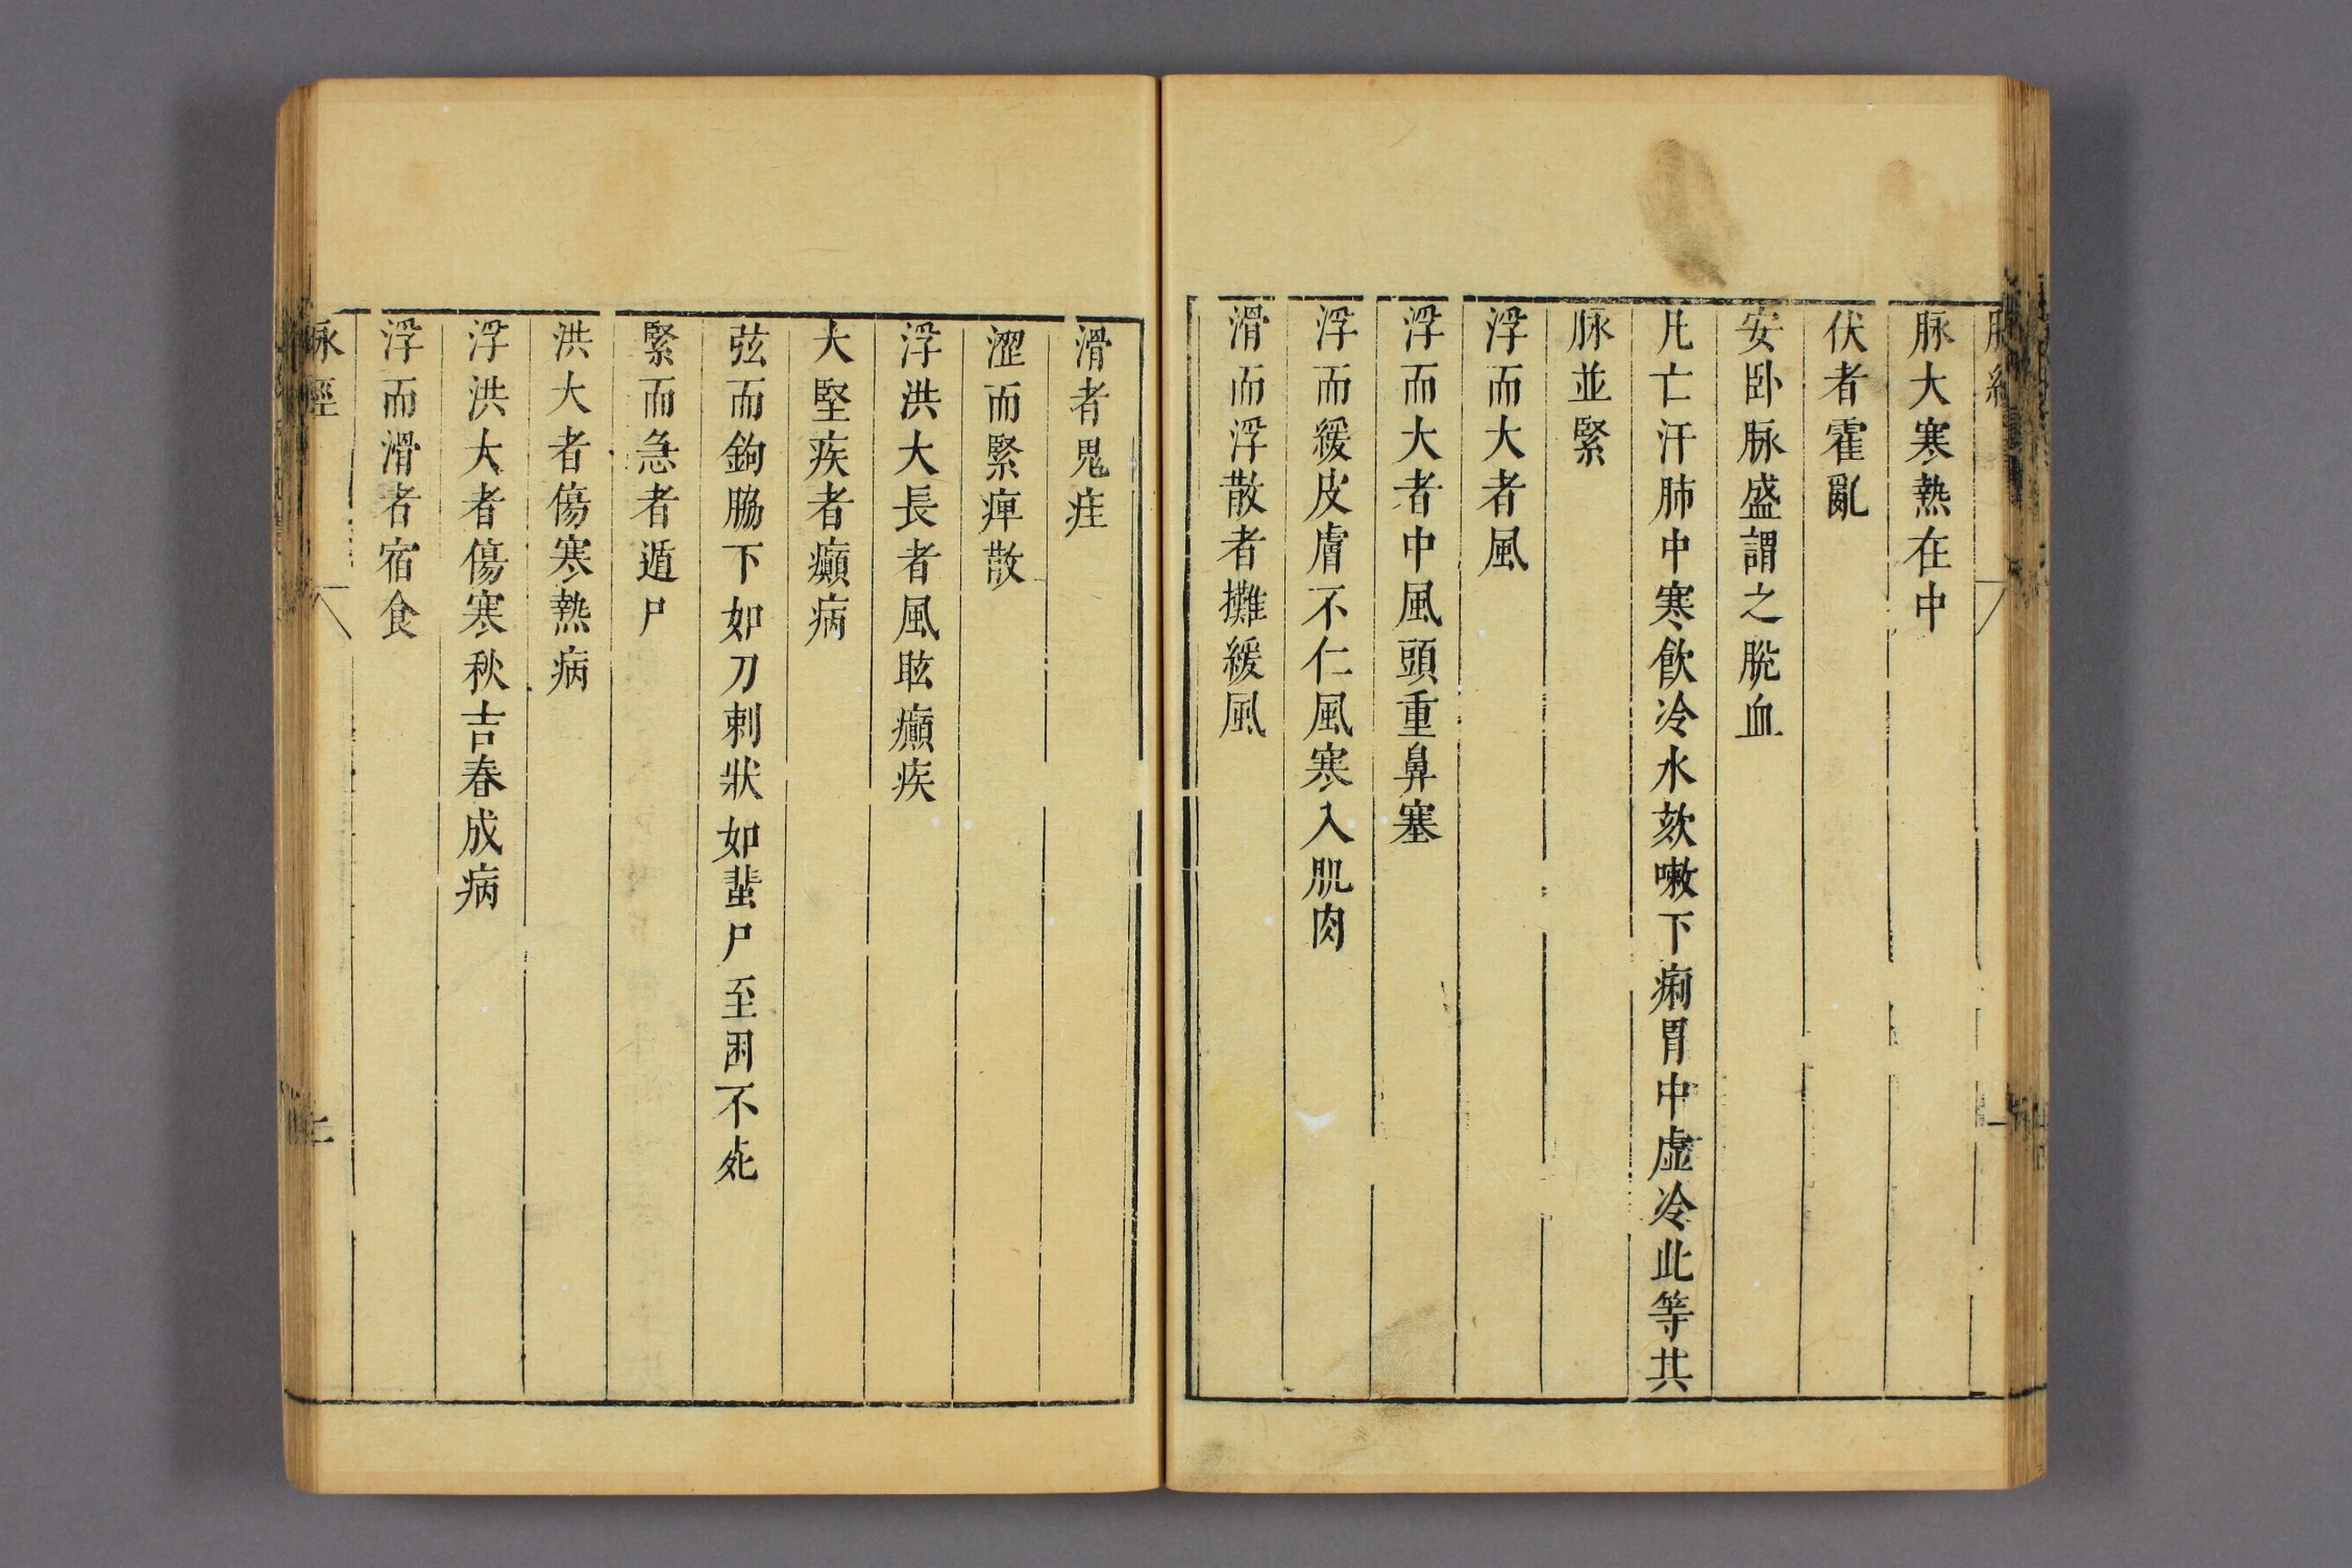 脉大寒熱在中
伏者霍亂
安臥脉盛謂之脫血
凡亡汗肺中寒飲冷水欬嗽下痢胃中虛冷此等共
脉並緊
浮而大者風
浮而大者中風頭重鼻塞
浮而緩皮膚不仁風寒入肌肉
滑而浮散者攤緩風
滑者鬼疰
澀而緊痺散
浮洪大長者風眩癲疾
大堅疾者癲病
弦而鉤脇下如刀刺狀如蜚尸至困不死
緊而急者遁尸
洪大者傷寒熱病
浮洪大者傷寒秋吉春成病
浮而滑者宿食
脉經